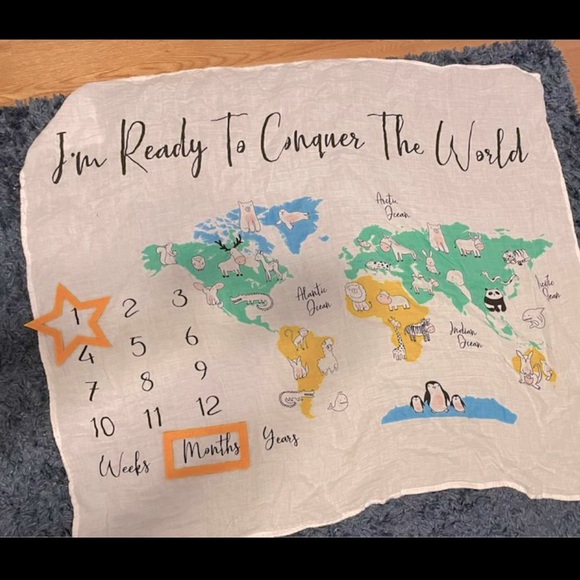 I'm Ready To Conquer The World
Arctic
Ocean
Atlantic
Ocean
Indian
Ocean
1 2 3
4 5 6
7 8 9
10 11 12
Weeks Months Years